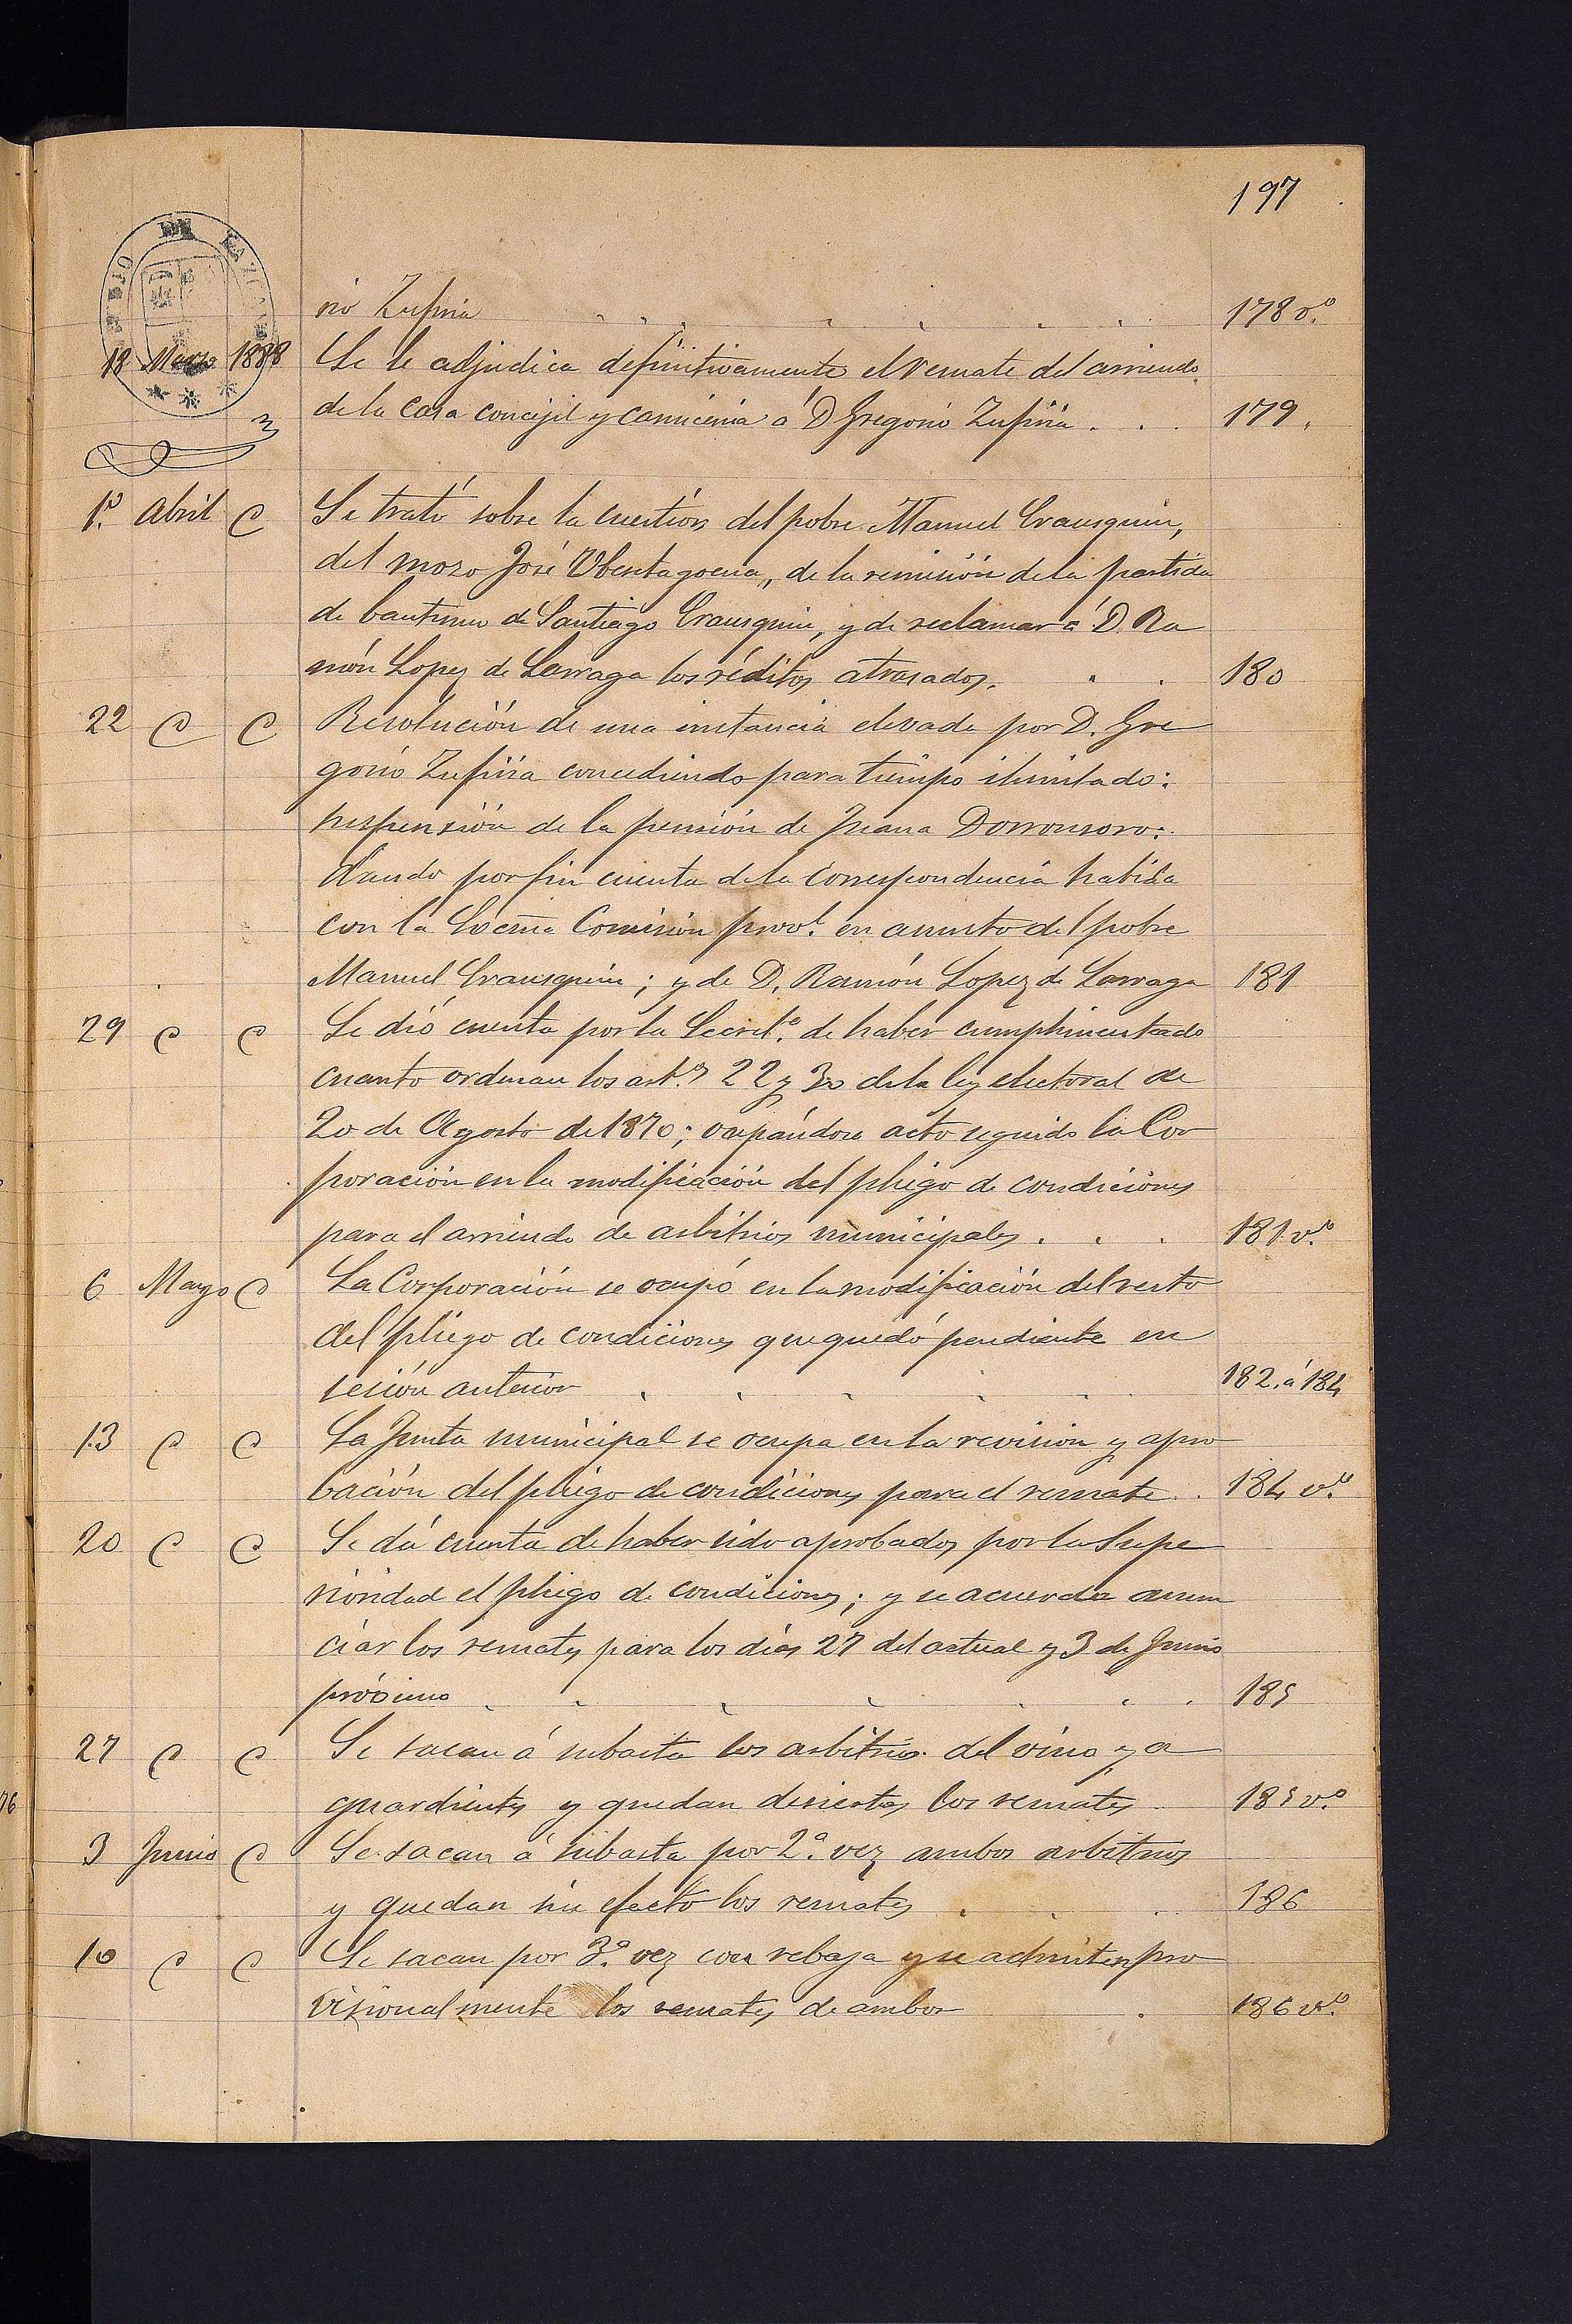 197
rio Zufiria 178 v.º
18 Marzo 1888 Se le adjudica definitivamente el remate del arriendo
de la casa concejil y carnicería á D Gregorio Zufiria . . . 179.
1.º Abril C Se trató sobre la cuestión del pobre Manuel Erausquin,
del mozo José Ubentagoena, de la remisión de la partida
de bautismo de Santiago Erausquin, y de reclamar á D. Ra
món Lopez de Larraga los réditos atrasados. . . 180
22 C C Resolución de una instancia elevada por D. Gre
gorio Zufiria concediendo para tiempo ilimitado:
suspensión de la pensión de Juana Dorronsoro:
dando por fin cuenta de la correspondencia habida
con la Excma Comisión prov.l en asunto del pobre
Manuel Erausquin; y de D. Ramón Lopez de Larraga 181
29 C C Se dió cuenta por la Secret.ª de haber cumplimentado
cuanto ordenan los art.s 22 y 30 de la ley electoral de
20 de Agosto de 1870; ocupándose acto seguido la Cor
poración en la modificación del pliego de condiciones
para el arriendo de arbitrios municipales . . . 181 v.º
6 Mayo C La Corporación se ocupó en la modificación del resto
del pliego de condiciones que quedó pendiente en
sesión anterior 182. á 184
13 C C La Junta municipal se ocupa en la revision y apro
bación del pliego de condiciones para el remate . 184 v.º
20 C C Se dá cuenta de haber sido aprobados por la Supe
rioridad el pliego de condiciones; y se acuerda anun
ciar los remates para los dias 27 del actual y 3 de Junio
próximo 185
27 C C Se sacan á subasta los arbitrios del vino y a
guardientes y quedan desiertos los remates 185 v.º
76
3 Junio C Se sacan á subasta por 2.ª vez ambos arbitrios
y quedan sin efecto los remates 186
10 C C Se sacan por 3.ª vez con rebaja y se admiten pro
visionalmente los remates de ambos 186 v.º